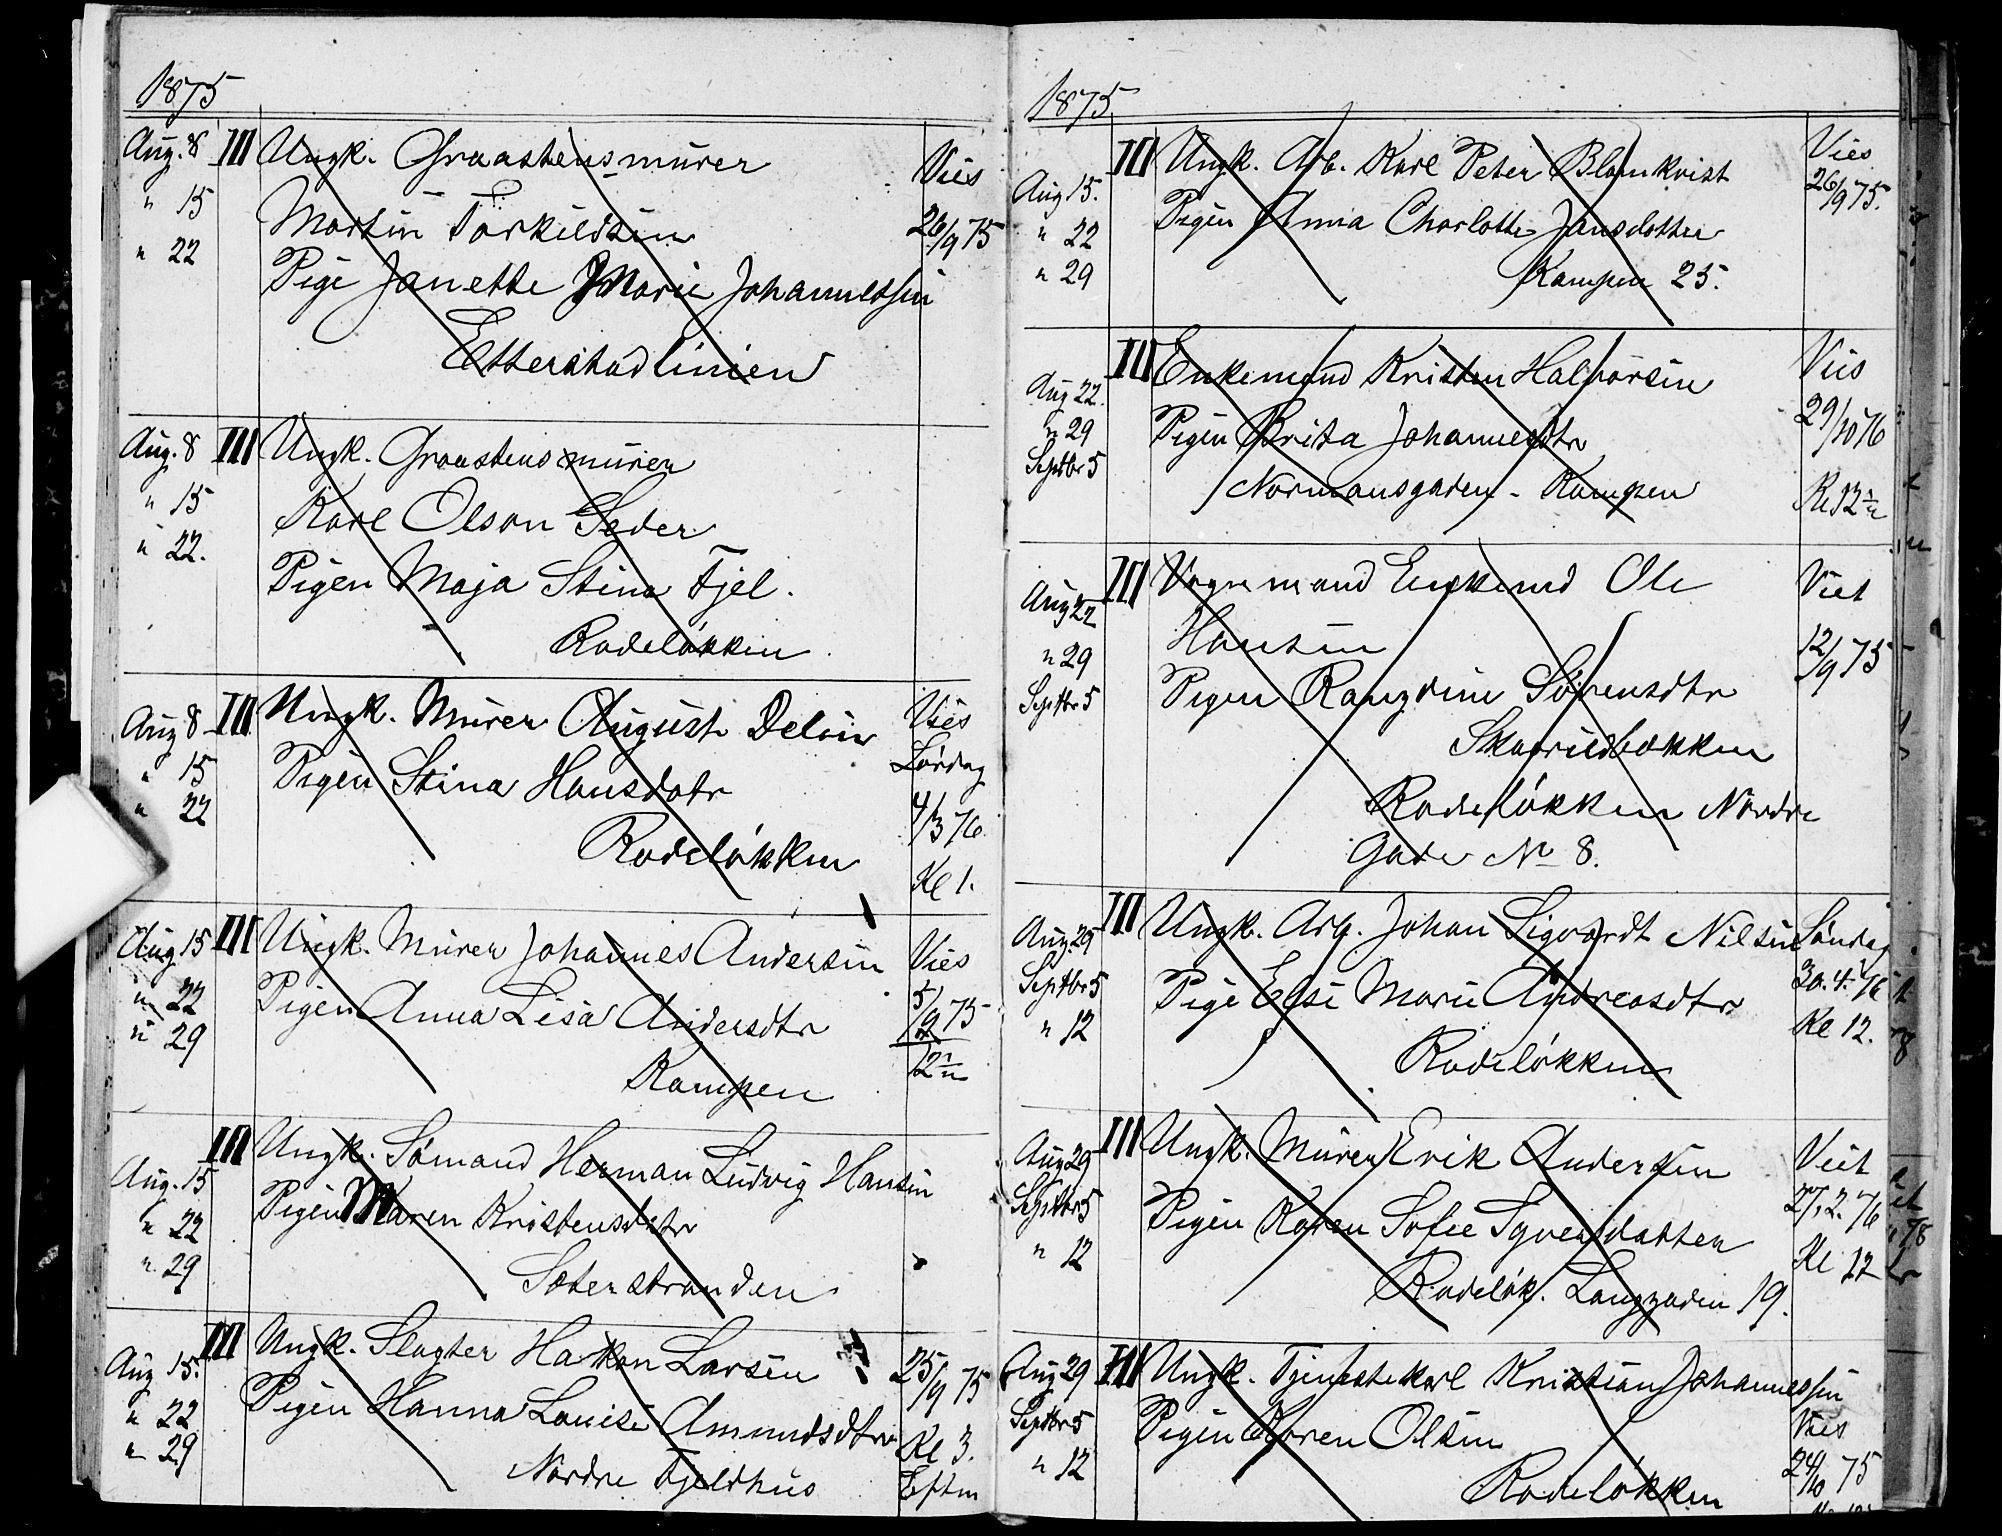 1875
Aug. 8 III Ungk. Graastensmurer
" 15 Martin Torkildsen Vies
" 22 Pige Janette Marie Johannessen 26/9 75
Etterstadlinien
Aug. 8 III Ungk. Graastensmurer
" 15 Karl Olson Seder
" 22. Pigen Maja Stina Fjel.
Rodeløkken
Aug 8 III Ungk. Murer August Delin Vies
" 15 Pigen Stina Hansdatr Lørdag
" 22 Rodeløkken 4/3 76
Kl 1.
Aug 15 III Ungk. Murer Johannes Andersen Vies
" 22 Pigen Anna Lisa Andersdtr 5/9 75
" 29 Kampen 12
Aug. 15 III Ungk. Sømand Herman Ludvig Hansen
" 22 Pigen Maren Kristensdtr
" 29 Sæterstranden
Aug 15. III Ungk. Slagter Hakon Larsen 25/9 75
" 22 Pigen Hanna Louise Amundsdtr Kl 3.
" 29 Nordre Fjeldhus Eftm
1875
Aug 15. III Ungk. Arb. Karl Peter Blomkvist Vies
" 22 Pigen Anna Charlotte Jansdotter 26/9 75.
" 29 Kampen 25.
Aug 22. III Enkemand Kristen Halvorsen Vies
" 29 Pigen Brita Johannesdtr 29/10 76
Septbr 5 Normansgaden - Kampen Kl 12
Aug 22 III Vognmand Enkemd Ole Viet
" 29 Hansen 12/9 75
Septbr 5 Pigen Rangdine Sørensdtr
Rodeløkken Nordre
Gade No 8.
Aug. 29 III Ungk. Arb. Johan Sigvardt Nilsen Søndag
Septbr 5 Pige Else Marie Andreasdtr 30.4. 76
" 12 Rodeløkken Kl 12.
Aug 29 III Ungk. Murer Erik Andersen Viet
Septbr 5 Pigen Karen Sofie Syversdatter 27.2. 76
" 12 Rodeløk. Langgaden 19. Kl 12
Aug 29 III Ungk. Tjenestekarl Kristian Johannessen
Septbr 5 Pigen Karen Olsen Vies
" 12 Rodeløkken 24/10 75